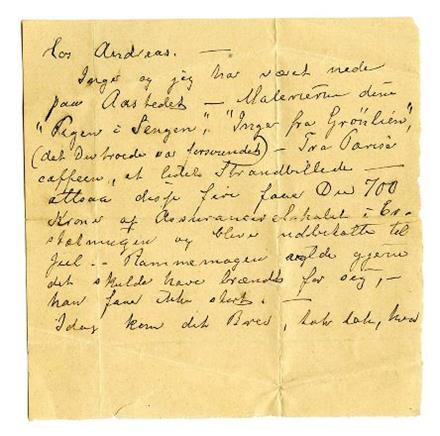 hos Andreas. —
Inger og jeg har været nede
paa Aastedet — Malerierne dine
"Pigen i Sengen", "Inger fra Grönlien",
(det Du troede var forsvundet) — Fra Pariser
caffeen, et lidet Strandbillede —
altsaa disse fire faar Du 700
Kroner af Assuranceselskabet i Er-
statningen og blive udbetalte til
Jul. — Rammemagen vilde gjerne
det skulde have brændt for sig, —
han faar ikke stort. —
Idag kom dit Brev, tak tak, hvor